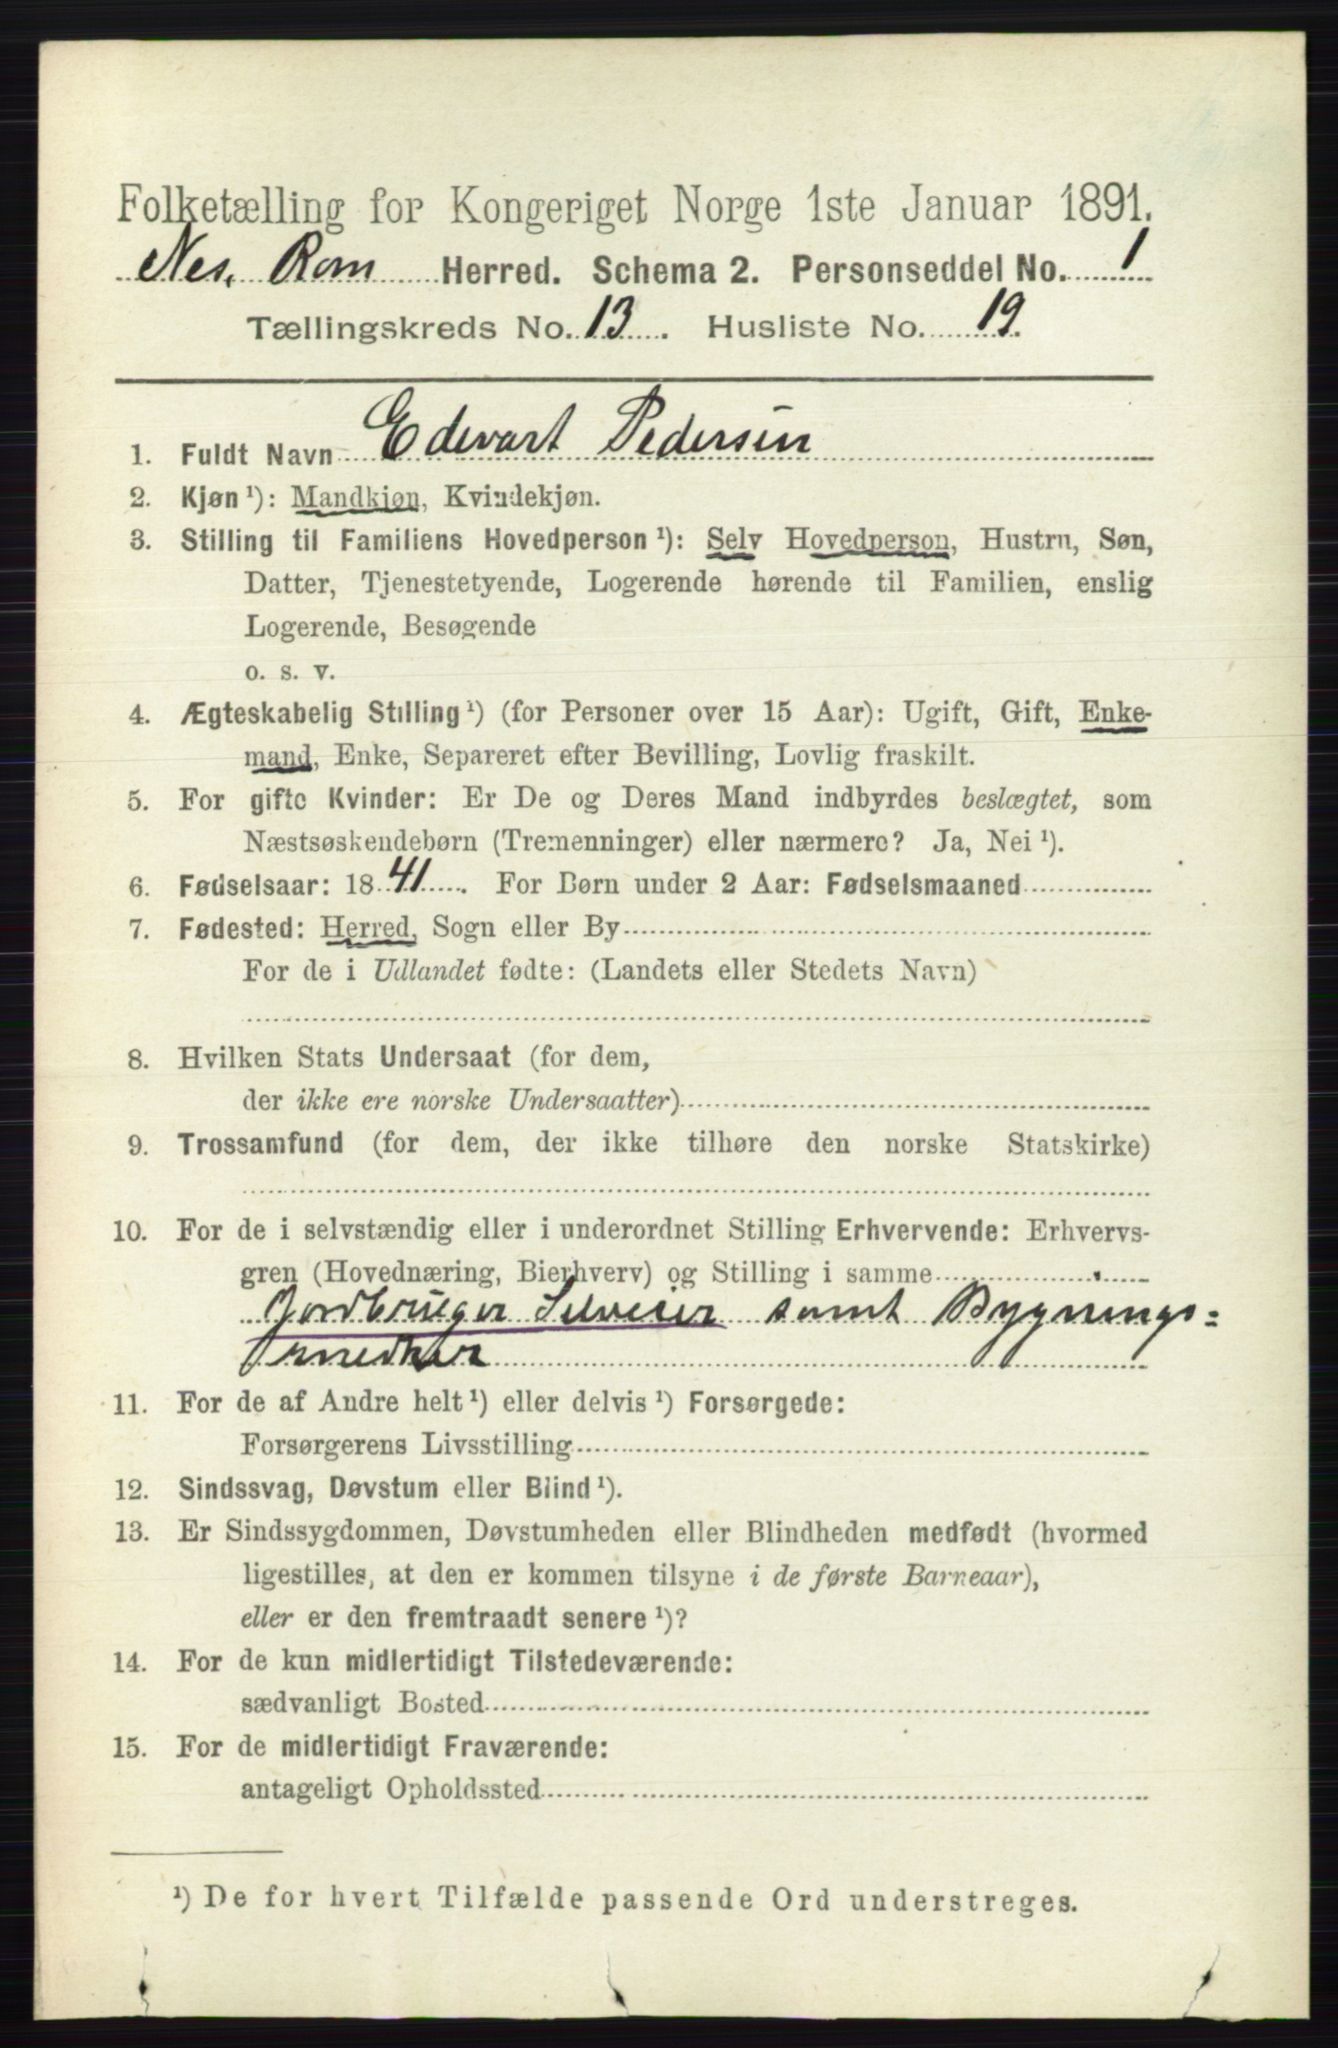 Folketælling for Kongeriget Norge 1ste Januar 1891.
Nes, Rom Herred. Schema 2. Personseddel No. 1
Tællingskreds No. 13. Husliste No. 19.
1. Fuldt Navn Edevart Pedersen
2. Kjøn ¹): Mandkjøn, Kvindekjøn.
3. Stilling til Familiens Hovedperson ¹): Selv Hovedperson, Hustru, Søn,
Datter, Tjenestetyende, Logerende hørende til Familien, enslig
Logerende, Besøgende
o. s. v.
4. Ægteskabelig Stilling ¹) (for Personer over 15 Aar): Ugift, Gift, Enke-
mand, Enke, Separeret efter Bevilling, Lovlig fraskilt.
5. For gifte Kvinder: Er De og Deres Mand indbyrdes beslægtet, som
Næstsøskendebørn (Tremenninger) eller nærmere? Ja, Nei ¹).
6. Fødselsaar: 1841. For Børn under 2 Aar: Fødselsmaaned
7. Fødested: Herred, Sogn eller By
For de i Udlandet fødte: (Landets eller Stedets Navn)
8. Hvilken Stats Undersaat (for dem,
der ikke ere norske Undersaatter)
9. Trossamfund (for dem, der ikke tilhøre den norske Statskirke)
10. For de i selvstændig eller i underordnet Stilling Erhvervende: Erhvervs-
gren (Hovednæring, Bierhverv) og Stilling i samme
Jordbruger Selveier samt Bygnings=
snedker
11. For de af Andre helt ¹) eller delvis ¹) Forsørgede:
Forsørgerens Livsstilling
12. Sindssvag, Døvstum eller Blind ¹).
13. Er Sindssygdommen, Døvstumheden eller Blindheden medfødt (hvormed
ligestilles, at den er kommen tilsyne i de første Barneaar),
eller er den fremtraadt senere ¹)?
14. For de kun midlertidigt Tilstedeværende:
sædvanligt Bosted
15. For de midlertidigt Fraværende:
antageligt Opholdssted
¹) De for hvert Tilfælde passende Ord understreges.